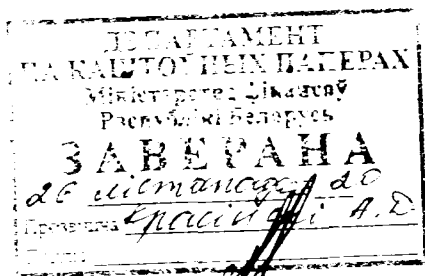 ДЭПАРТАМЕНТ
ПА КАШТОЎНЫХ ПАПЕРАХ
Міністэрства Фінансаў
Рэспублікі Беларусь
ЗАВЕРАНА
26 лістапада 20
Прозвішча А.Д.